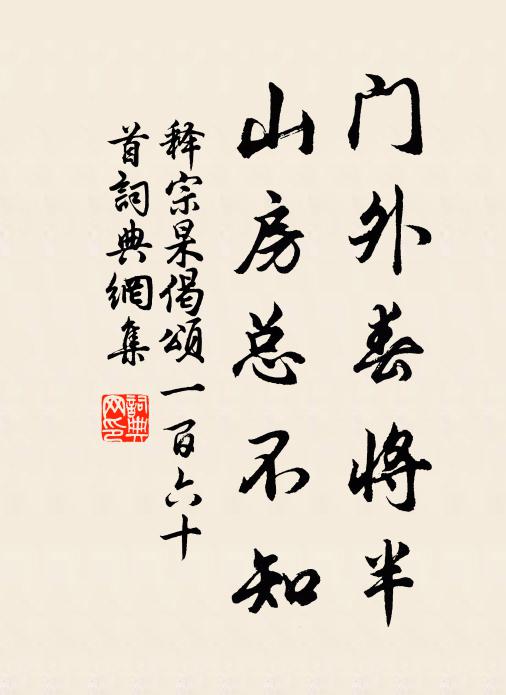 门外春将半
山房总不知
释宗杲偈頌一百六十
首詞典網集
詞典
网印